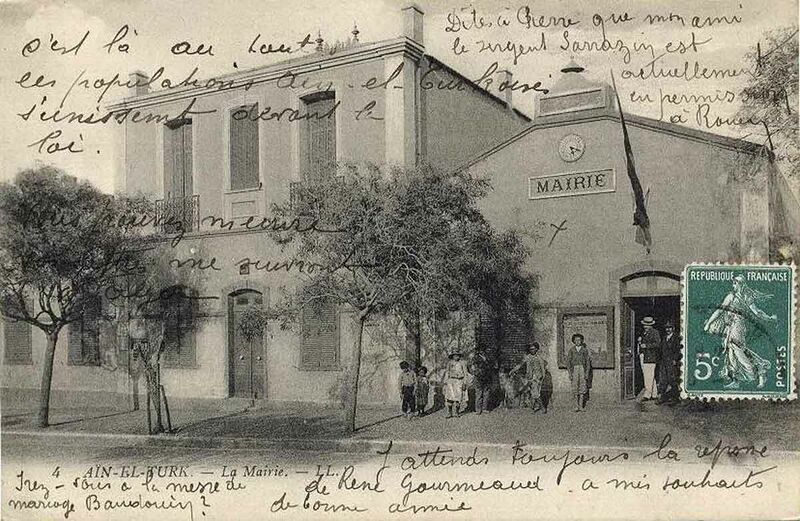 c'est là au tout
les populations Aïn-el-Turkoises
s'unissent devant la
loi.
Dites à Pierre que mon ami
le sergent Sarrazin est
actuellement
en permission
à Rouen
me suivront
MAIRIE
RÉPUBLIQUE FRANÇAISE
5c
POSTES
4 AÏN-EL-TURK. — La Mairie. — LL.
J'attends toujours la réponse
de René Gourmeaud a mes souhaits
de bonne année
Irez-vous à la messe de
mariage Baudouin?